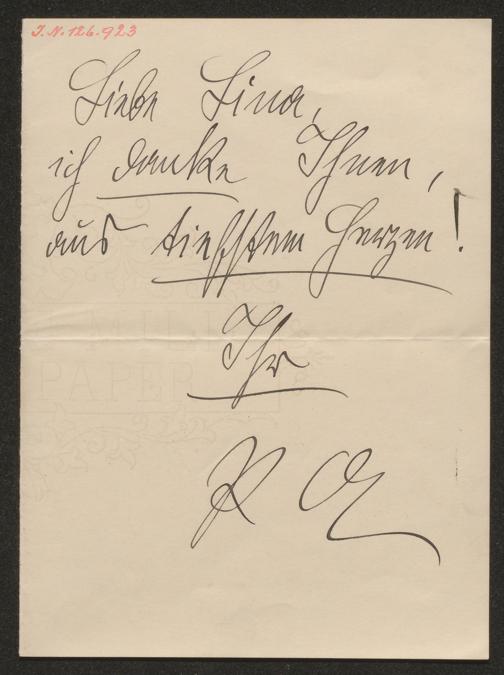 I.N. 126.923
Liebe Lina,
ich danke Ihnen,
aus tiefstem Herzen!
Ihr
PA
MILL
PAPER